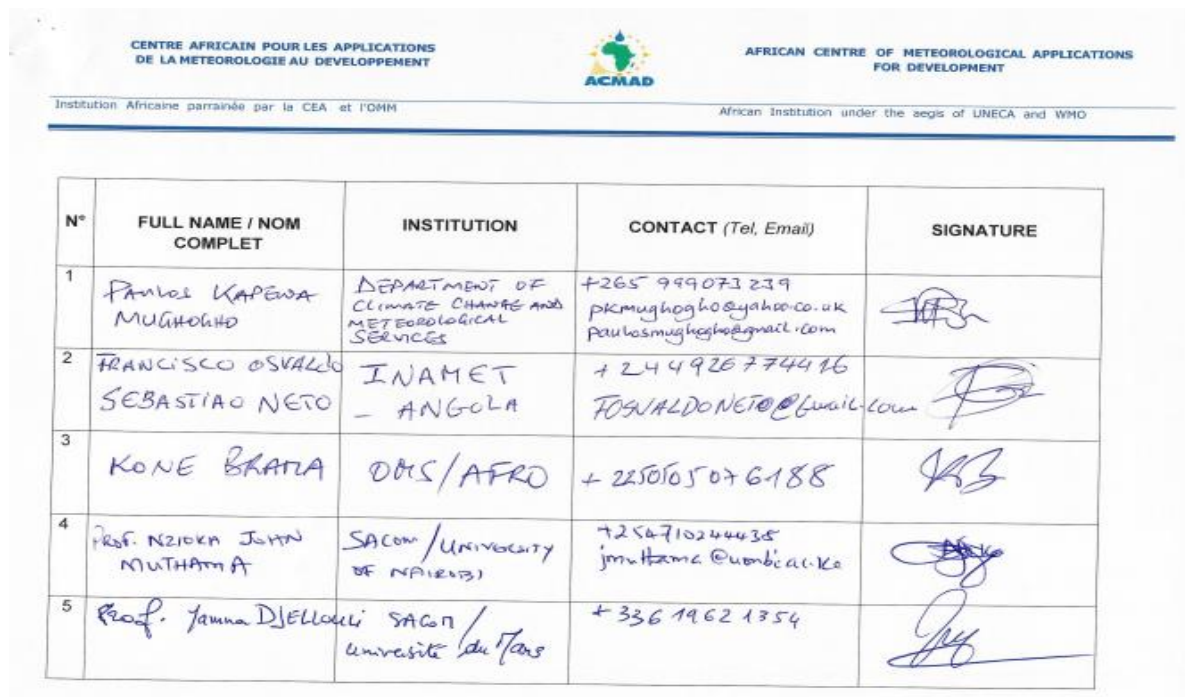 CENTRE AFRICAIN POUR LES APPLICATIONS
DE LA METEOROLOGIE AU DEVELOPPEMENT
ACMAD
AFRICAN CENTRE OF METEOROLOGICAL APPLICATIONS
FOR DEVELOPMENT
Institution Africaine parrainée par la CEA et l'OMM
African Institution under the aegis of UNECA and WMO
N° FULL NAME / NOM COMPLET INSTITUTION CONTACT (Tel, Email) SIGNATURE
1
Paulos KAPEWA
MUGHOGHO
DEPARTMENT OF
CLIMATE CHANGE AND
METEOROLOGICAL
SERVICES
+265 999073239
pkmughogho@yahoo.co.uk
paulosmughogho@gmail.com
2
FRANCISCO OSVALDO
SEBASTIAO NETO
INAMET
- ANGOLA
+244926774416
FOSVALDONETO@Gmail.com
3
KONE BRAMA
OMS/AFRO
+2250505076188
4
PROF. NZIOKA JOHN
MUTHAMA
SACOM/UNIVERSITY
OF NAIROBI
+254710244435
jmuthama@uonbi.ac.ke
5
Prof. Yamna DJELLOULI
SACOM/
université du Mans
+33619621354